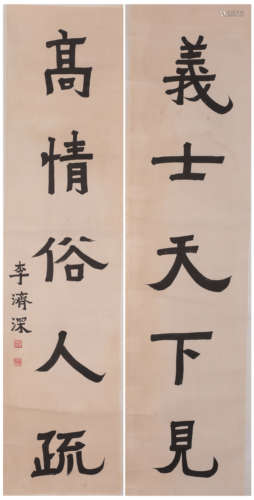 義士天下見
高情俗人疏
李濟深